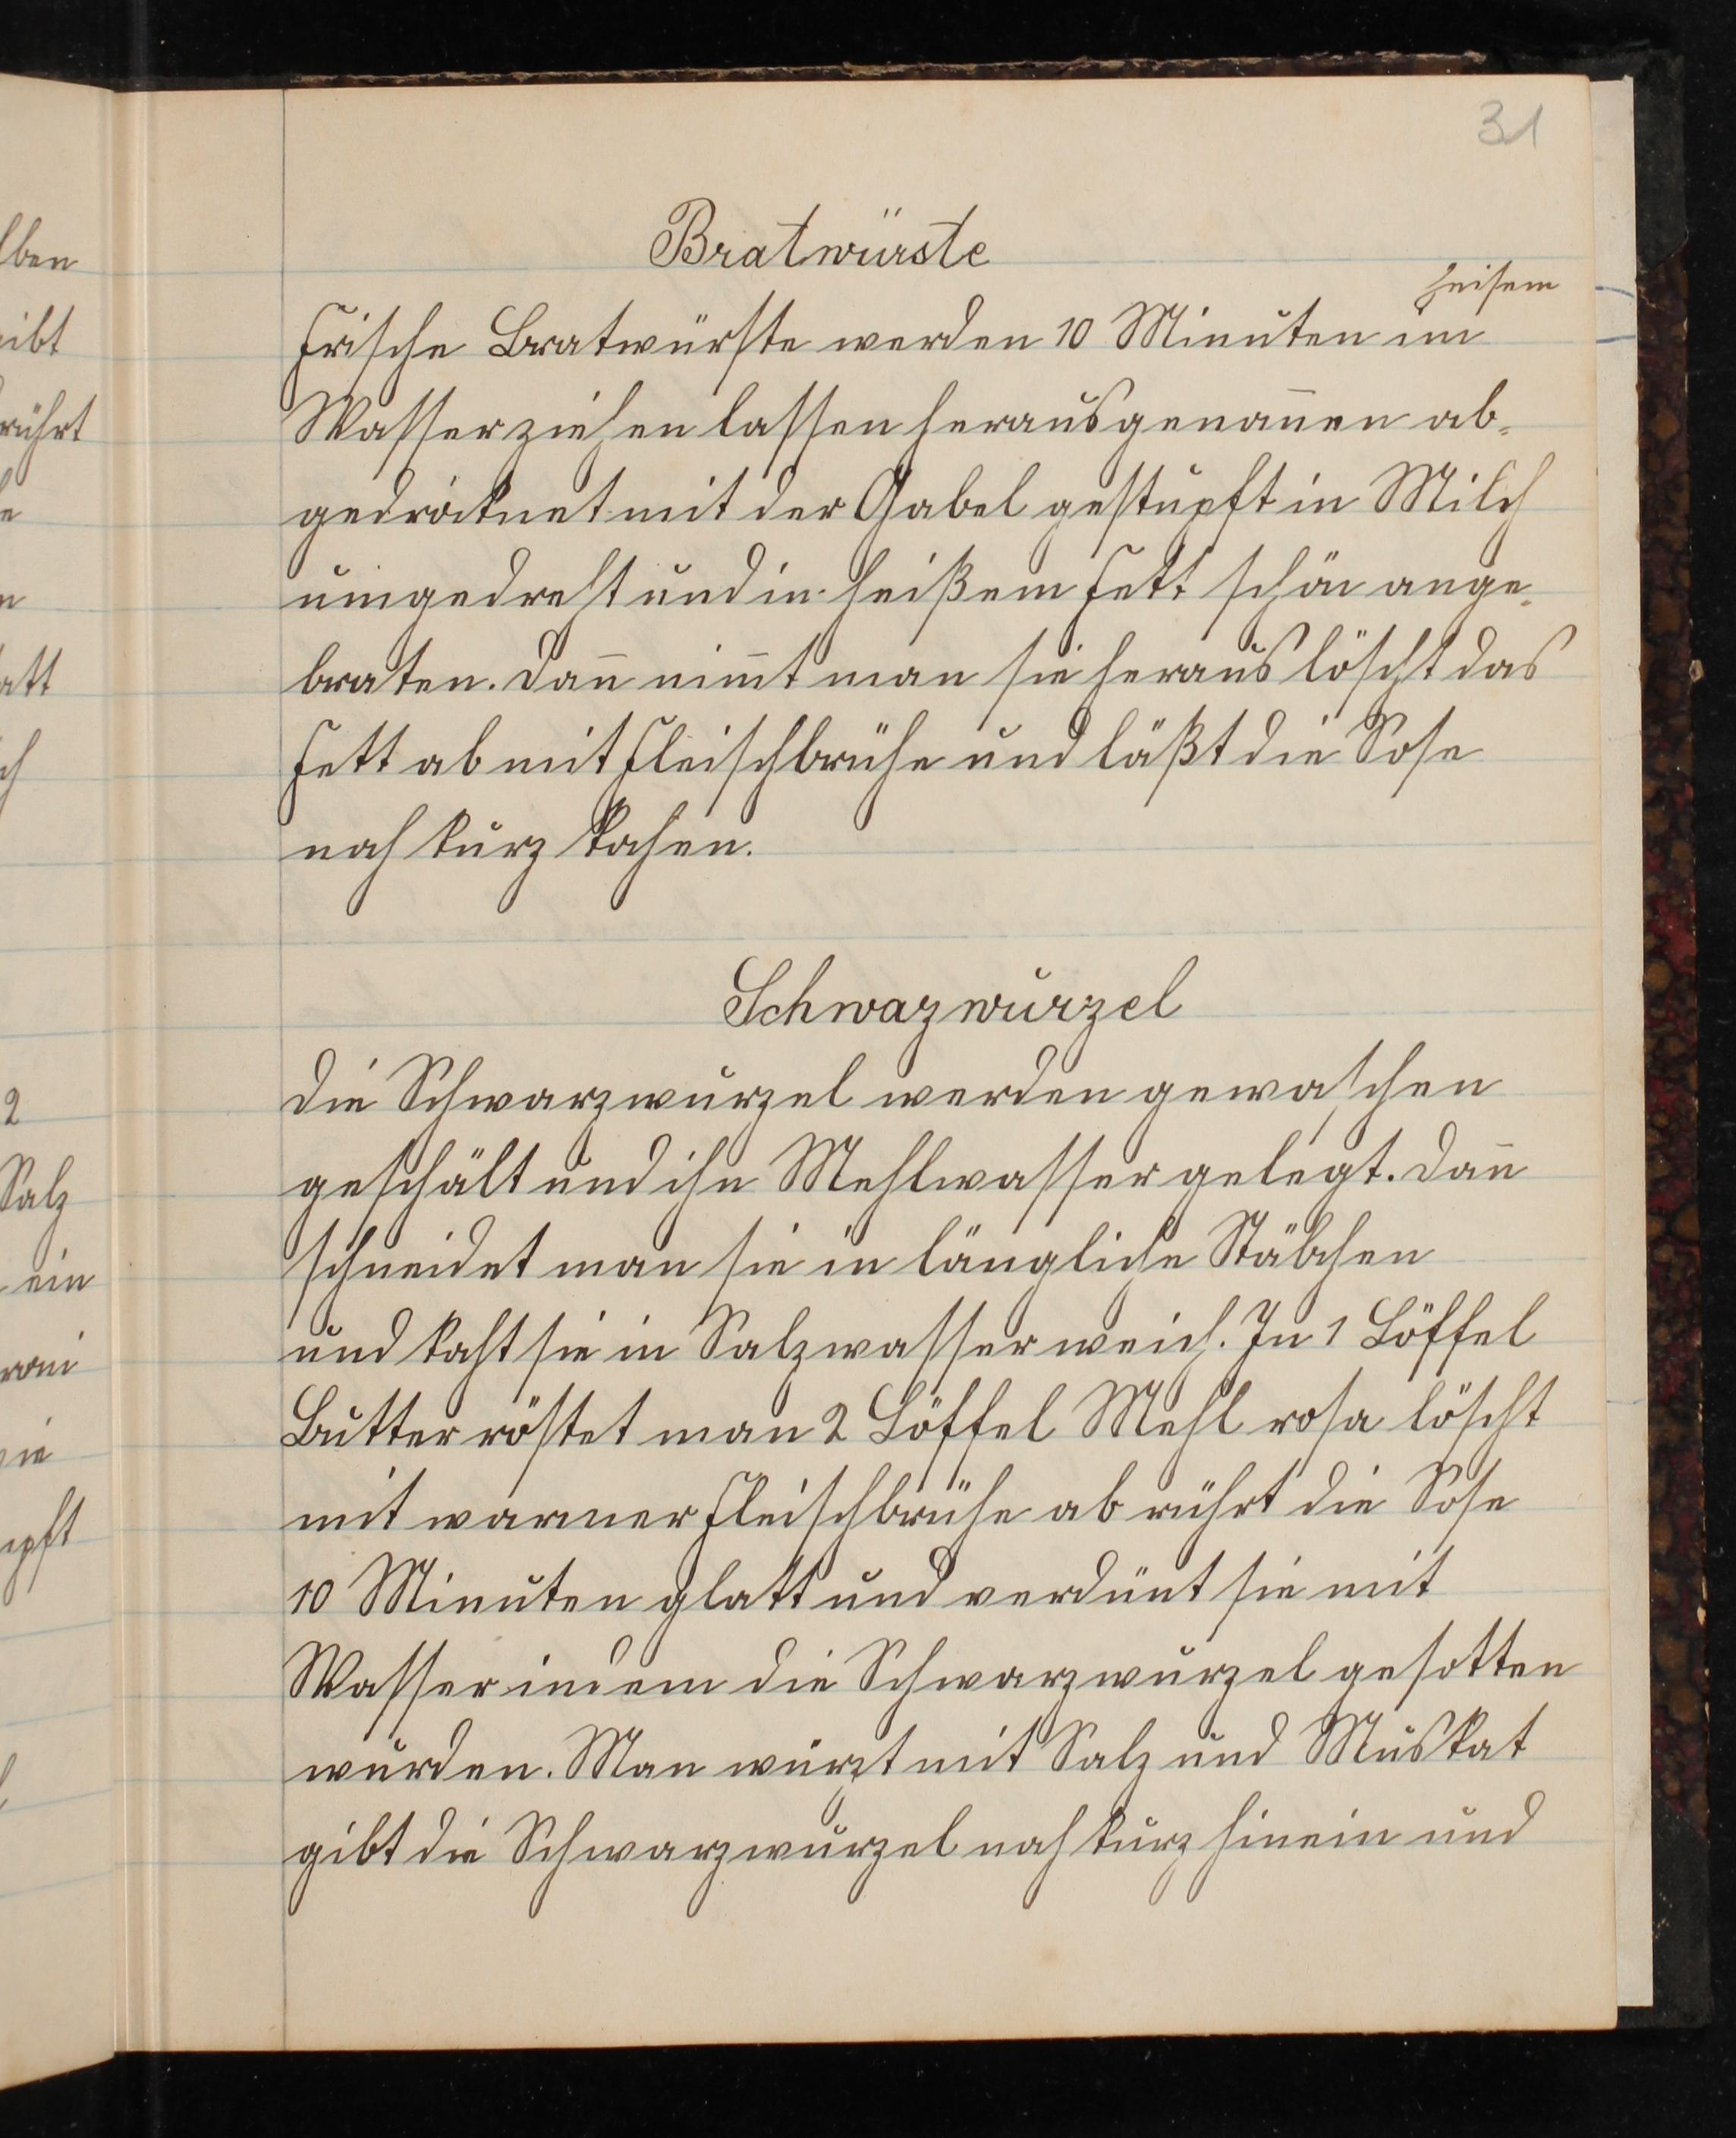 31
Bratwürste
heisem
Frische Bratwürste werden 10 Minuten im
Wasser ziehen lassen herausgenom̄en ab-
gedrocknet mit der Gabel gestupft in Milch
umgedreht und in heißem Fett schön ange-
braten. Dan̄ nim̄t man sie heraus löscht das
Fett ab mit Fleischbrühe und läßt die Sose
noch kurz kochen.
Schwazwurzel
Die Schwarzwurzel werden gewaschen
geschält und ihn Mehlwasser gelegt. Dan̄
schneidet man sie in längliche Stäbchen
und kocht sie in Salzwasser weich. In 1 Löffel
Butter röstet man 2 Löffel Mehl rosa löscht
mit warmer Fleischbrühe ab rührt die Sose
10 Minuten glatt und verdünt sie mit
Wasser indem die Schwarzwurzel gesotten
wurden. Man würzt mit Salz und Muskat
gibt die Schwarzwurzel noch kurz hinein und
lben
eibt
rührt
att
2
Salz
ein